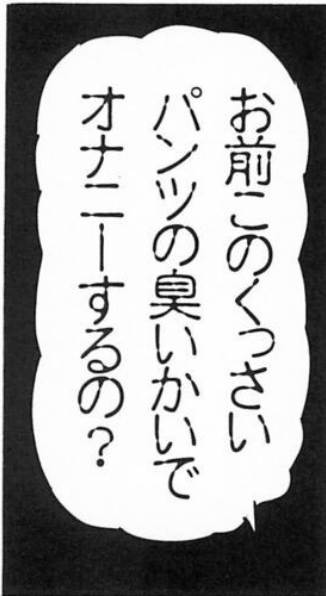 お前このくっさい
パンツの臭いかいで
オナニーするの？